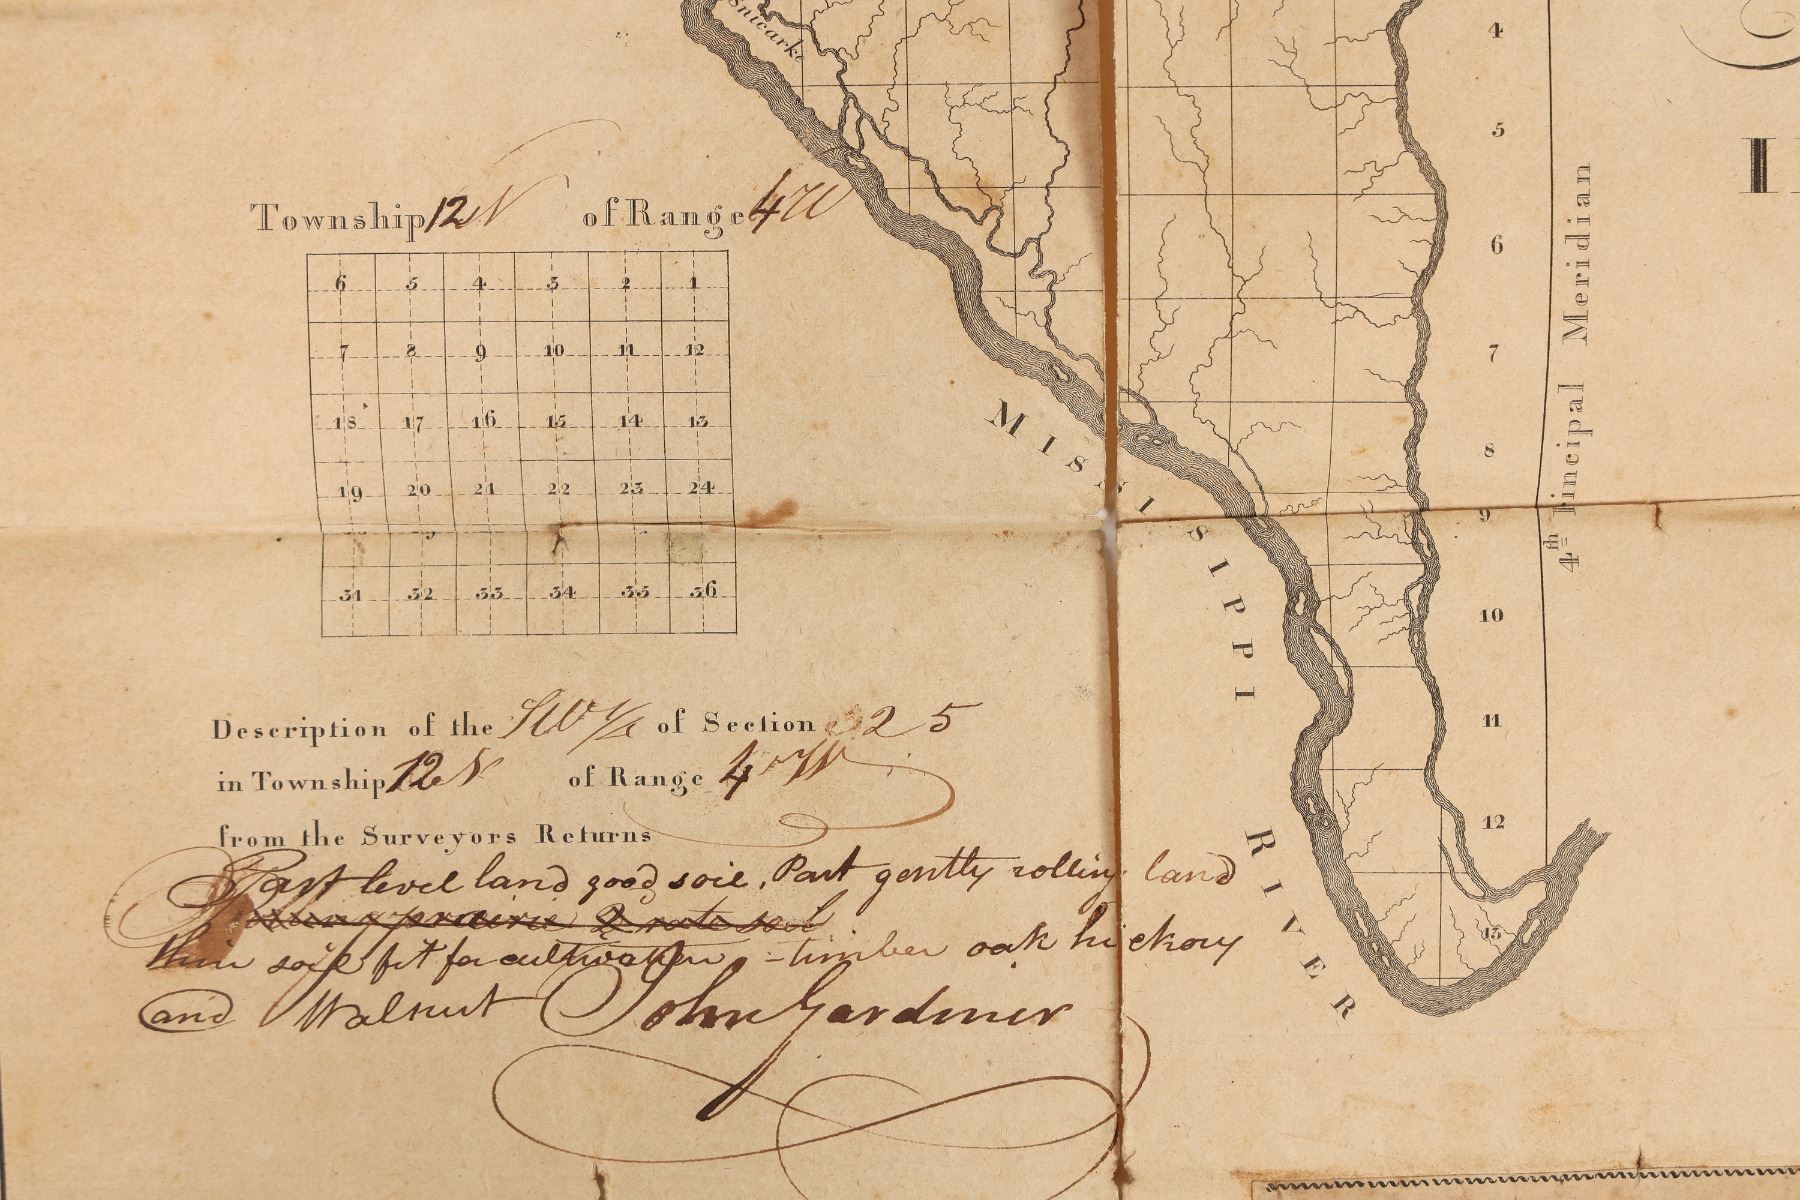 Snicarte
4
5
6
7
8
9
10
11
12
13
4th Principal Meridian
Township 12 N of Range 4 W
6 5 4 3 2 1
7 8 9 10 11 12
18 17 16 15 14 13
19 20 21 22 23 24
31 32 33 34 35 36
MISSISSIPPI RIVER
Description of the SW 1/4 of Section 25
in Township 12 N of Range 4 W
from the Surveyors Returns
Part level land good soil, Part gently rolling land
prairie 2 rate soil
thin soil fit for cultivation - timber oak hickory
and Walnut John Gardiner